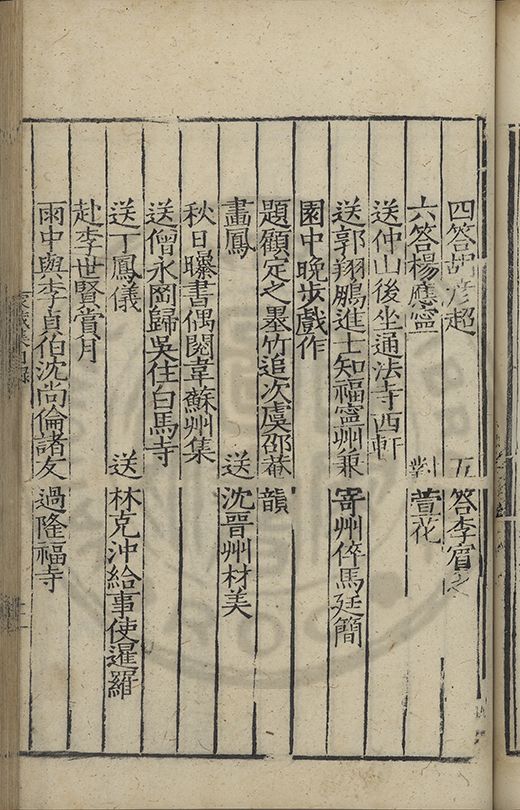 四答胡彦超 五答李賓之
六答楊應寧 對萱花
送仲山後坐通法寺西軒
送郭翔鵬進士知福寧州兼 寄州倅馬廷簡
園中晚步戲作
題顧定之墨竹追次虞邵菴 韻
畵鳳 送沈晋州材美
秋日曝書偶閱韋蘇州集
送僧永岡歸吳住白馬寺
送丁鳳儀 送林克沖給事使暹羅
赴李世賢賞月
雨中與李貞伯沈尚倫諸友 過隆福寺